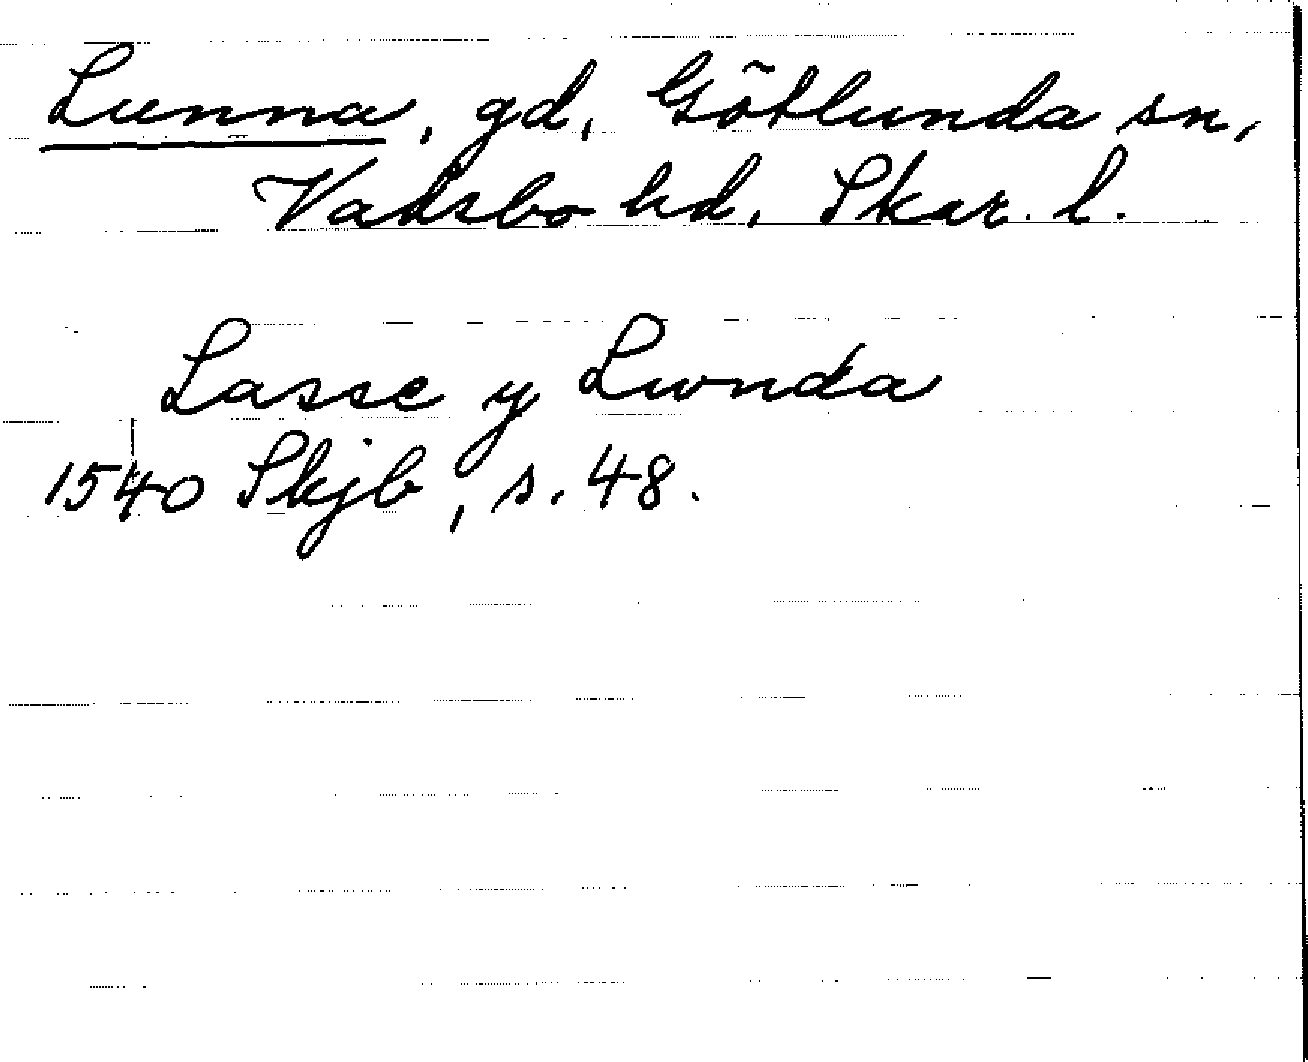 Lunna, gd, Götlunda sn,
Vadsbo hd. Skar. l.
Lasse y Lwnda
1540 Skjb, s. 48.